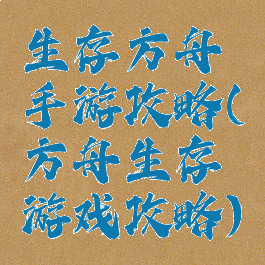 生存方舟
手游攻略(
方舟生存
游戏攻略)